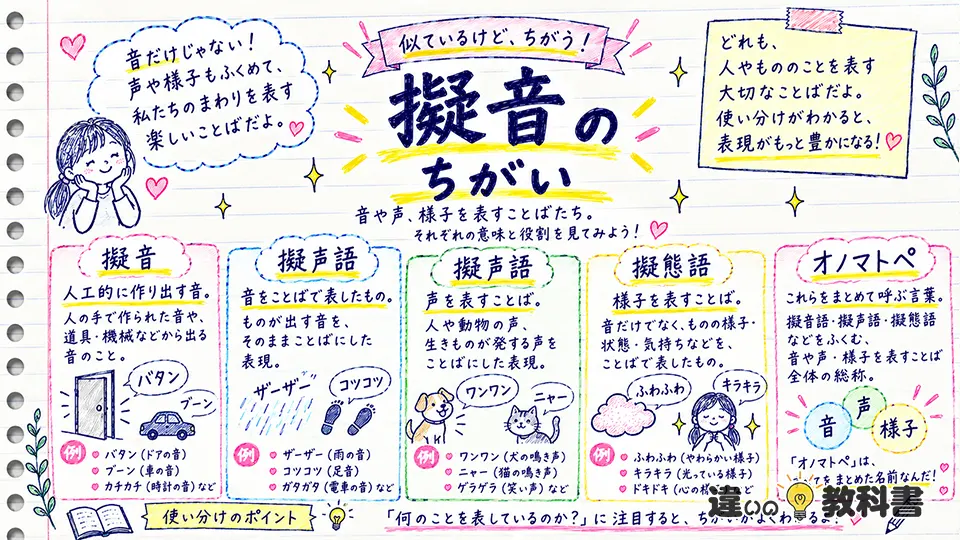 音だけじゃない！
声や様子もふくめて、
私たちのまわりを表す
楽しいことばだよ。
似ているけど、ちがう！
擬音の
ちがい
音や声、様子を表すことばたち。
それぞれの意味と役割を見てみよう！
どれも、
人やもののことを表す
大切なことばだよ。
使い分けがわかると、
表現がもっと豊かになる！
擬音
人工的に作り出す音。
人の手で作られた音や、
道具・機械などから出る
音のこと。
バタン
ブーン
例
バタン（ドアの音）
ブーン（車の音）
カチカチ（時計の音）など
擬声語
音をことばで表したもの。
ものが出す音を、
そのままことばにした
表現。
ザーザー
コツコツ
例
ザーザー（雨の音）
コツコツ（足音）
ガタガタ（電車の音）など
擬声語
声を表すことば。
人や動物の声、
生きものが発する声を
ことばにした表現。
ワンワン
ニャー
例
ワンワン（犬の鳴き声）
ニャー（猫の鳴き声）
ゲラゲラ（笑い声）など
擬態語
様子を表すことば。
音だけでなく、ものの様子・
状態・気持ちなどを、
ことばで表したもの。
ふわふわ
キラキラ
例
ふわふわ（やわらかい様子）
キラキラ（光っている様子）
ドキドキ（心の
オノマトペ
これらをまとめて呼ぶ言葉。
擬音語・擬声語・擬態語
などをふくむ、
音や声・様子を表すことば
全体の総称。
音
声
様子
「オノマトペ」は、
をまとめた名前なんだ！
使い分けのポイント
「何のことを表しているのか？」に注目すると、ちがいがよくわかるよ！
違いの教科書